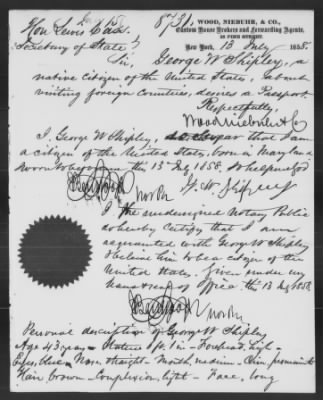 Hon Lewis Cass
Secretary of State
8731,
WOOD, NIEBUHR, & CO.,
Custom House Brokers and Forwarding Agents,
New York, 13 July 1858.
Sir,
George W Shipley, a
native citizen of the United States, about
visiting foreign countries, desires a Passport.
Respectfully,
Wood Niebuhr & Co
I, George W Shipley, do swear that I am
a citizen of the United States, born in Maryland
Sworn before me this 13 July 1858. So help me God
G. W. Shipley
Not Pub
I the undersigned Notary Public
do hereby certify that I am
acquainted with George W Shipley
& believe him to be a citizen of the
United States. Given under my
hand & seal of office this 13 July 1858
Not Pub
Personal description of George W Shipley
Age 43 years - Stature 6 ft. 1 in - Forehead, high -
Eyes, blue - Nose, straight - Mouth, medium - Chin prominent
Hair brown - Complexion, light - Face, long